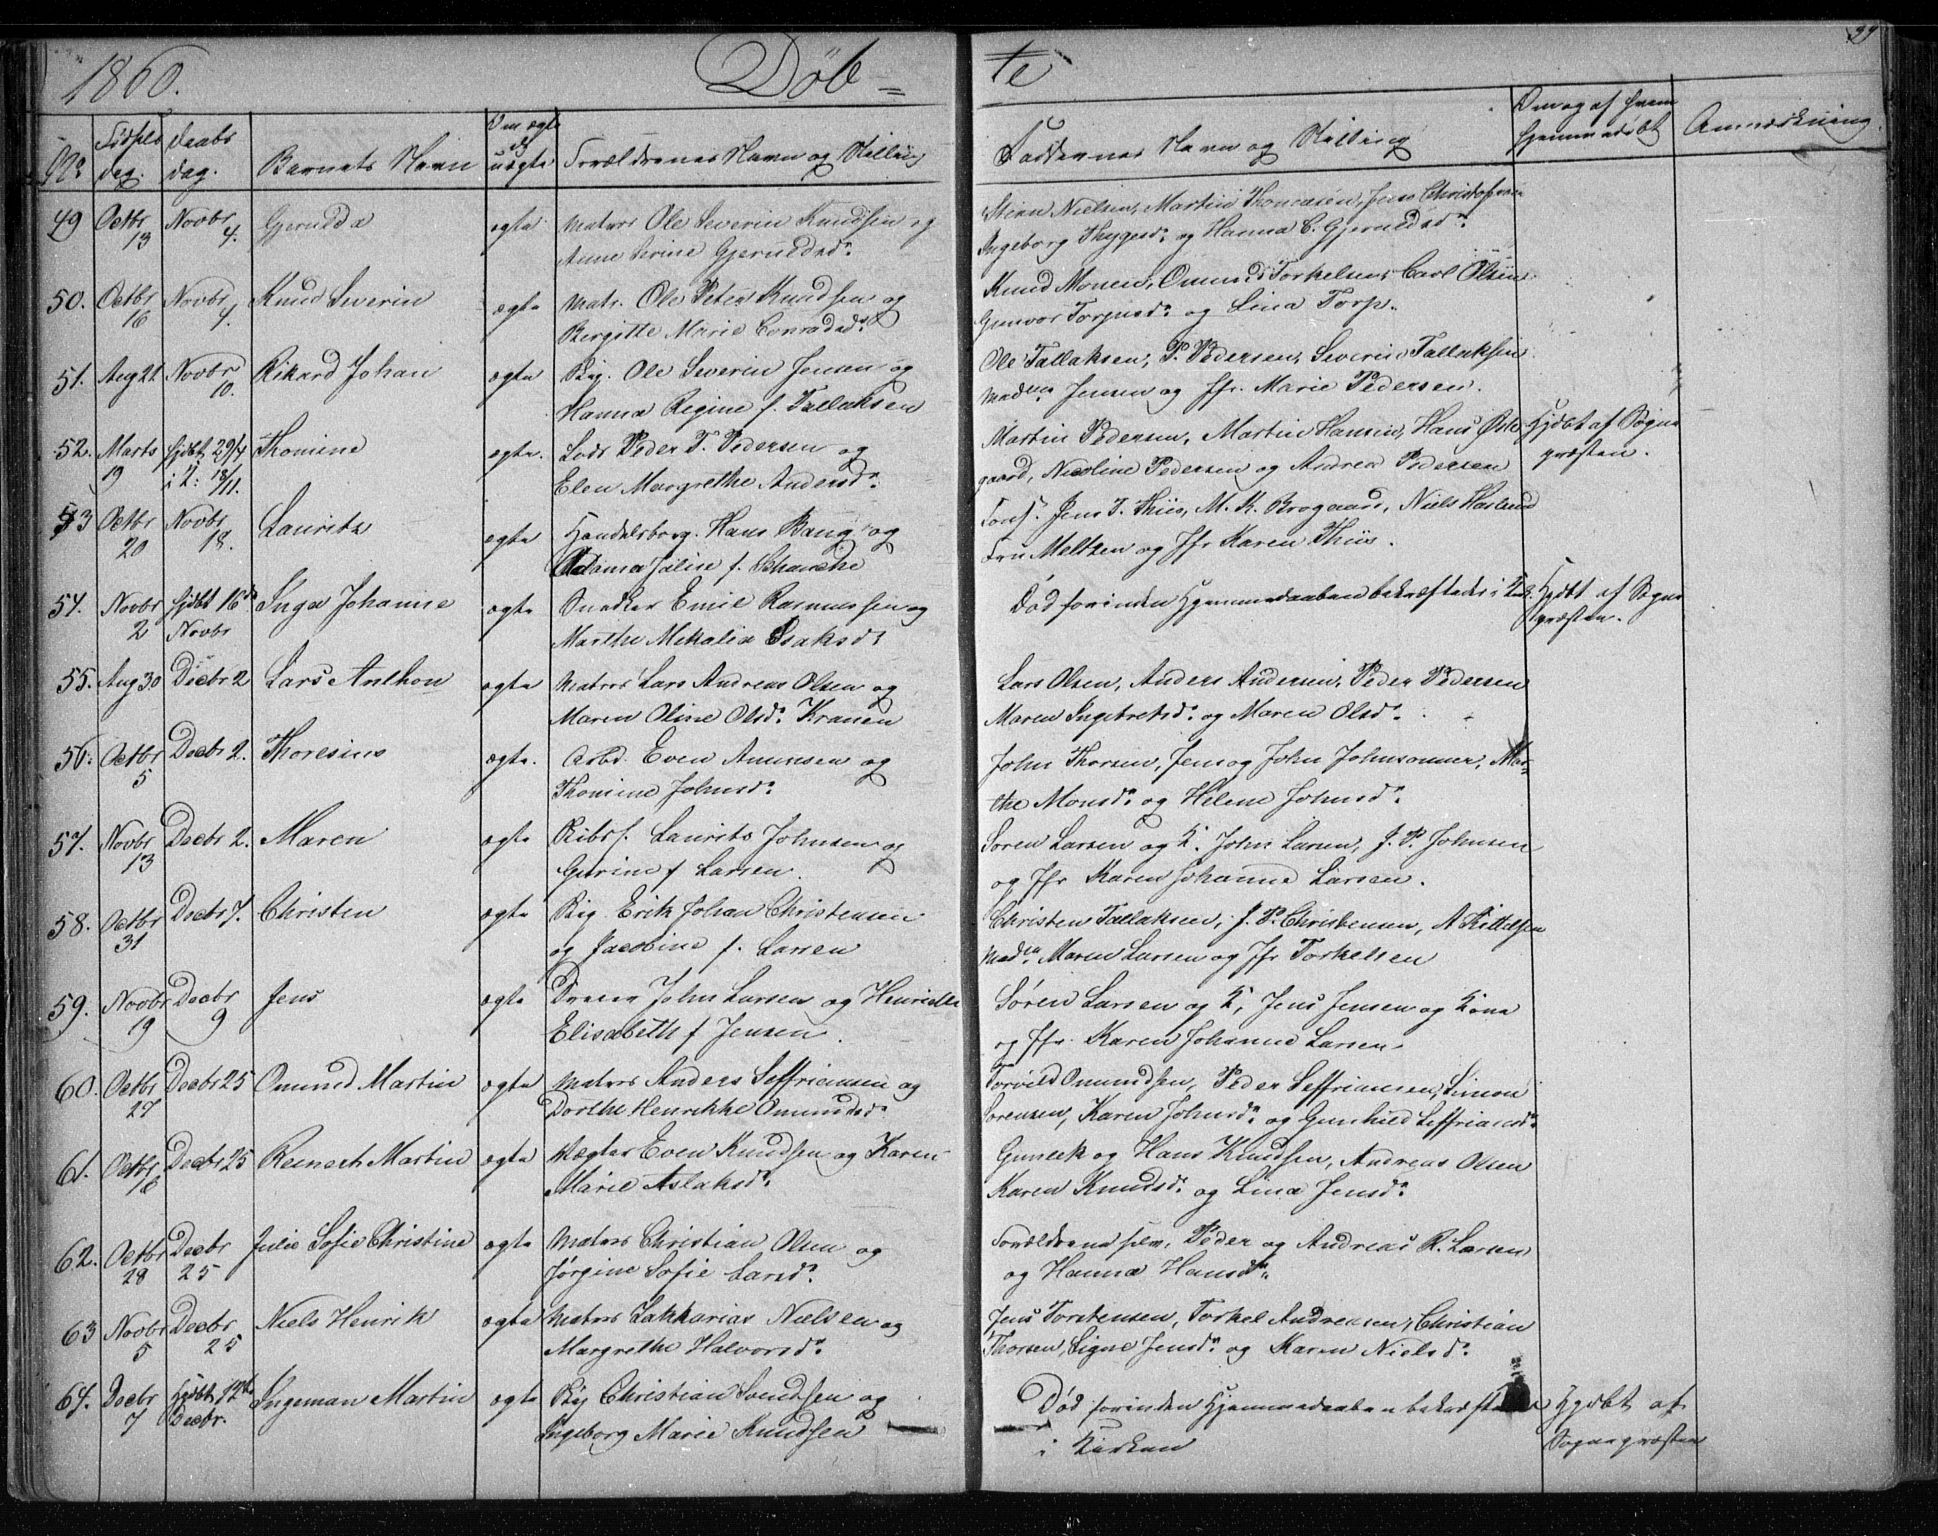 1860.
Døb=
te
29
No
Fødsels dag.
Daabs dag.
Barnets Navn
Om ægte el uægte
Forældrenes Navn og Stilling
Faddernes Navn og Stilling
Om og af hvem hjemmedøbt
Anmærkning.
49 Octbr 13 Novbr 4. Gjerulda ægte Matros Ole Severin Knudsen og
Anne Serine Gjeruldsd.
Stien Nielsen, Martin Thomasen, Jens Christophersen
Ingeborg Thygesd. og Hanna C. Gjeruldsd.
50. Octbr 16 Novbr 4. Knud Severin ægte Matr. Ole Peter Knudsen og
Bergitte Marie Conradsd.
Knud Monsen, Omund Torkelsen, Carl Olsen
Gunvor Torjusd. og Lina Torp.
51. Aug 21 Novbr 10. Rikard Johan ægte Ole Severin Jensen og
Hanna Regine f. Tallaksen
Ole Tallaksen, P. Pedersen, Severin Tallaksen
Madme Jensen og Jfr. Marie Pedersen.
52. Marts 19 hjdbt 29/4 i K: 18/11. Thomine ægte. Lods Peder T. Pedersen og
Elen Margrethe Andersd.
Martin Pedersen, Martin Hansen, Hans Øde
gaard, Nicoline Pedersen og Andrea Pedersen
Hjdbt af Sogne
præsten.
53 Octbr 20 Novbr 18. Lauritz ægte Handelsborg. Hans Bang og
Adama Jalin f. Schanche
Cons. Jens J. Thiis, M. K. Brogaard, Niels Haslund
Fru Meltzen og Jfr Karen Thiis.
54. Novbr 2 hjdbt 16de Novbr Inga Johanne ægte Snedker Emil Rasmussen og
Marthe Mekalia Isaksd.
Død forinden Hjemmedaaben bekræftedes i K.
Hjdbt af Sogne
præsten.
55. Aug 30 Decbr 2 Lars Anthon ægte Matros Lars Andreas Olsen og
Maren Oline Olsd. Kranen
Lars Olsen, Anders Andersen, Peder Pedersen
Maren Ingebretsd. og Maren Olsd.
56. Octbr 5 Decbr 2. Thoresius ægte. Arbd. Even Amunsen og
Thomine Johnsd.
John Thorsen, Jens og John Johnsønner, Mar-
the Monsd. og Helene Johnsd.
57. Novbr 13 Decbr 2. Maren ægte Skibsf. Laurits Johnsen og
Gurine f Larsen.
Søren Larsen og K. John Larsen, J. P. Johnsen
og Jfr Karen Johanne Larsen.
58. Octbr 31 Decbr 7. Christen ægte Erik Johan Christensen
og Jacobine f. Larsen
Christen Tallaksen, J. P. Christensen, A Kittelsen
Madme Maren Larsen og Jfr Torkelsen
59. Novbr 19 Decbr 9 Jens ægte John Larsen og Henriette
Elisabeth f Jensen.
Søren Larsen og K, Jens Jensen og Kone
og Jfr. Karen Johanne Larsen.
60. Octbr 27 Decbr 25 Omund Martin ægte Matros Anders Seffriansen og
Dorthe Henrikke Omundsd.
Torvild Omundsen, Peder Seffriansen, Simon
Sorensen, Karen Johnsd. og Gunhild Seffriansd.
61. Octbr 16 Decbr 25 Reinert Martin ægte Vægter Even Knudsen og Karen
Marie Aslaksd.
Gunlek og Hans Knudsen, Andreas Olsen
Karen Knudsd. og Lina Jensd.
62. Octbr 28 Decbr 25 Julie Sofie Christine ægte Matros Christian Olsen og
Jørgine Sofie Larsd.
Forældrene selv, Peder og Andreas R. Larsen
og Hanna Hansd.
63 Novbr 5 Decbr 25 Niels Henrik ægte Matros Zakkarias Nielsen og
Margrethe Halvorsd.
Jens Torstensen, Torkel Andreasen, Christian
Thorsen, Signe Jensd. og Karen Nielsd.
64. Decbr 7 Hjdbt 12te Decbr. Ingeman Martin ægte Christian Svendsen og
Ingeborg Marie Knudsen
Død forinden Hjemmedaaben bekræftedes
i Kirken
Hjdbt af
Sognepræsten